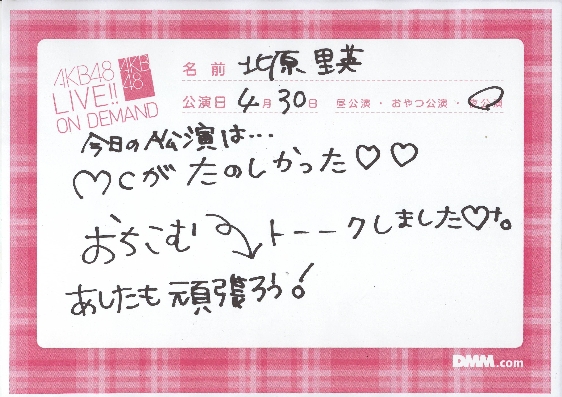 AKB48
LIVE!!
ON DEMAND
AKB
48
名前 北原里英
公演日 4月30日 昼公演・おやつ公演・夜公演
今日の公演は…
MCがたのしかった♡♡
おちこむ トークしました♡
あしたも頑張ろう!
DMM.com